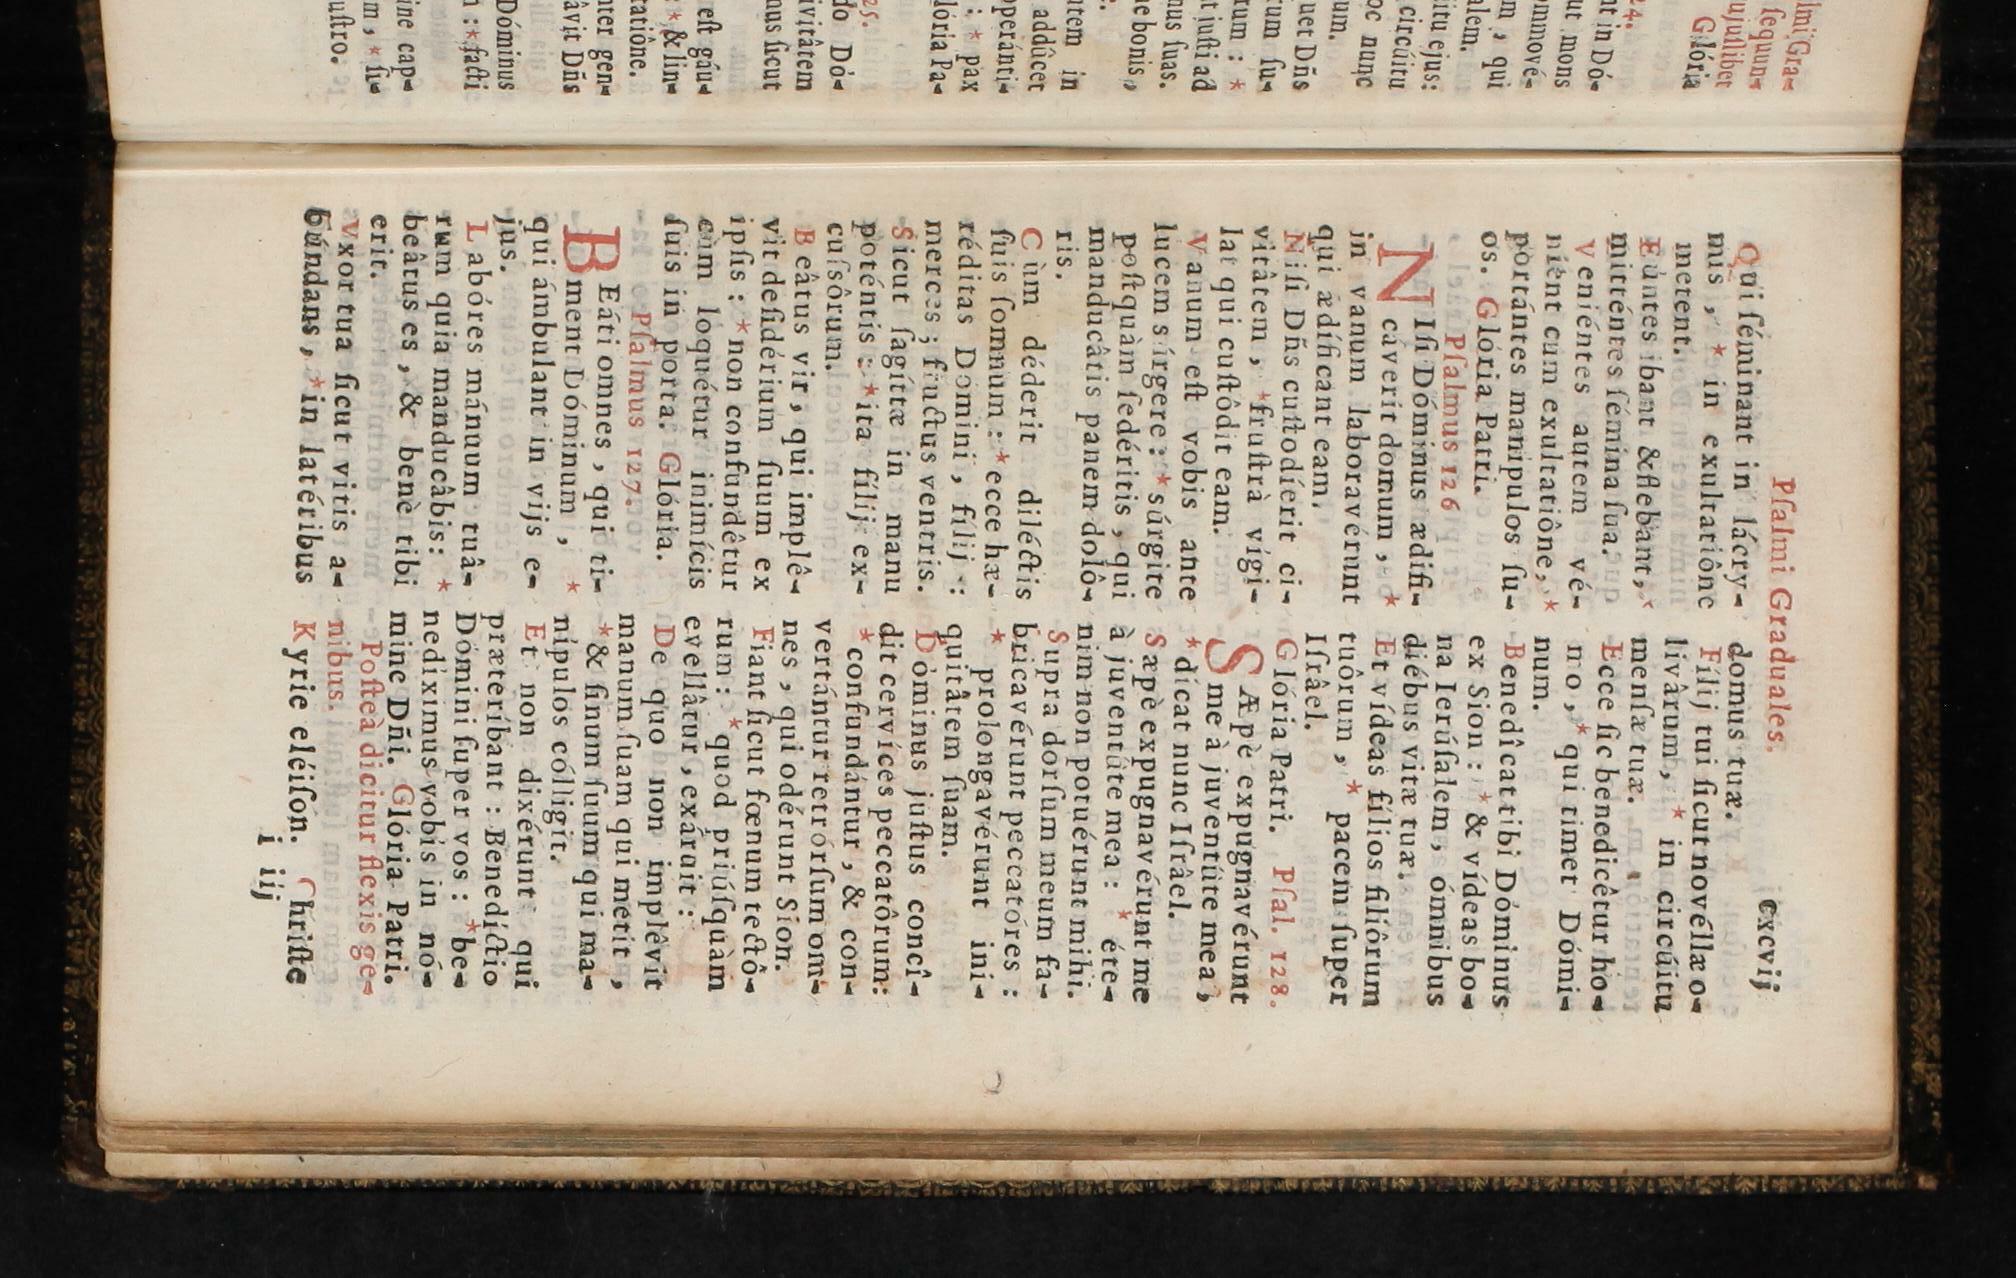 lmi Gra-
sequun-
ujuslibet
Glória
24.
nt in Dó-
ut mons
ommové-
m, qui
alem.
circúitu
itu ejus:
oc nunc
um.
uet Dñs
rum su-
tum: *
nt justi ad
nus suas.
ne bonis,
utem in
addûcet
operánti-
: * pax
lória Pa-
25.
do Dó-
ivitâtem
nus sicut
est gáu-
: * & lin-
tatiône.
nter gen-
âvit Dñs
Dóminus
n : * facti
ine cap-
m, * si-
ustro.
Psalmi Graduales. cxcvij
Qui séminant in lácry-
mis, * in exultatiône
metent.
Eúntes ibant & flebant, *
mitténtes sémina sua.
Veniéntes autem vé-
nient cum exultatiône, *
portántes manipulos su-
os. Glória Patri.
Psalmus 126
NIsi Dóminus ædifi-
cáverit domum, *
in vanum laboravérunt
qui ædíficant eam.
Nisi Dñs custodíerit ci-
vitâtem, * frustrà vígi-
lat qui custôdit eam.
Vanum est vobis ante
lucem súrgere: * súrgite
postquàm sedéritis, qui
manducâtis panem dolô-
ris.
Cùm déderit diléctis
suis somnum: * ecce hæ-
réditas Domini, fílij :
merces; fructus ventris.
Sicut sagíttæ in manu
poténtis: * ita fílij ex-
cussôrum.
Beâtus vir, qui implê-
vit desidérium suum ex
ipsis: * non confundêtur
cùm loquétur inimícis
suis in porta. Glória.
Psalmus 127.
BEáti omnes, qui ti-
ment Dóminum, *
qui ámbulant in vijs e-
jus.
Labóres mánuum tuâ-
rum quia manducâbis: *
beâtus es, & benè tibi
erit.
Vxor tua sicut vitis a-
búndans, * in latéribus
domus tuæ.
Fílij tui sicut novéllæ o-
livârum, * in circúitu
mensæ tuæ.
Ecce sic benedicêtur ho
mo, * qui timet Dómi-
num.
Benedîcat tibi Dóminus
ex Sion: * & vídeas bo-
na Ierúsalem, ómnibus
diébus vitæ tuæ.
Et vídeas fílios filiôrum
tuôrum, * pacem super
Israël.
Glória Patri. Psal. 128.
SÆpè expugnavérunt
me à juventûte mea,
* dícat nunc Israêl.
Sæpè expugnavérunt me
à juventûte mea: * éte-
nim non potuérunt mihi.
Supra dorsum meum fa-
bricavérunt peccatóres:
* prolongavérunt ini-
quitâtem suam.
Dóminus justus concî-
dit cervíces peccatôrum:
* confundántur, & con-
vertántur retrórsum om-
nes, qui odérunt Sion.
Fiant sicut fœnum tectô-
rum: * quod priúsquàm
evellâtur, exáruit:
De quo non implêvit
manum suam qui metit,
* & sinum suum qui ma-
nípulos cólligit.
Et non dixérunt qui
præteríbant: Benedíctio
Dómini super vos: * be-
nedíximus vobis in nó-
mine Dñi. Glória Patri.
Posteà dicitur flexis ge-
nibus.
Kyrie eléison. Christe
i iij